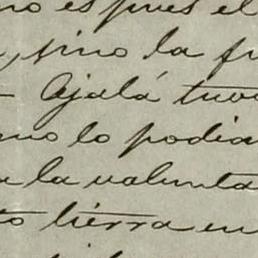 no es pues el
, sino la fu
- Ojalá tuvo
mo lo podia
a la volunta
to tierra en